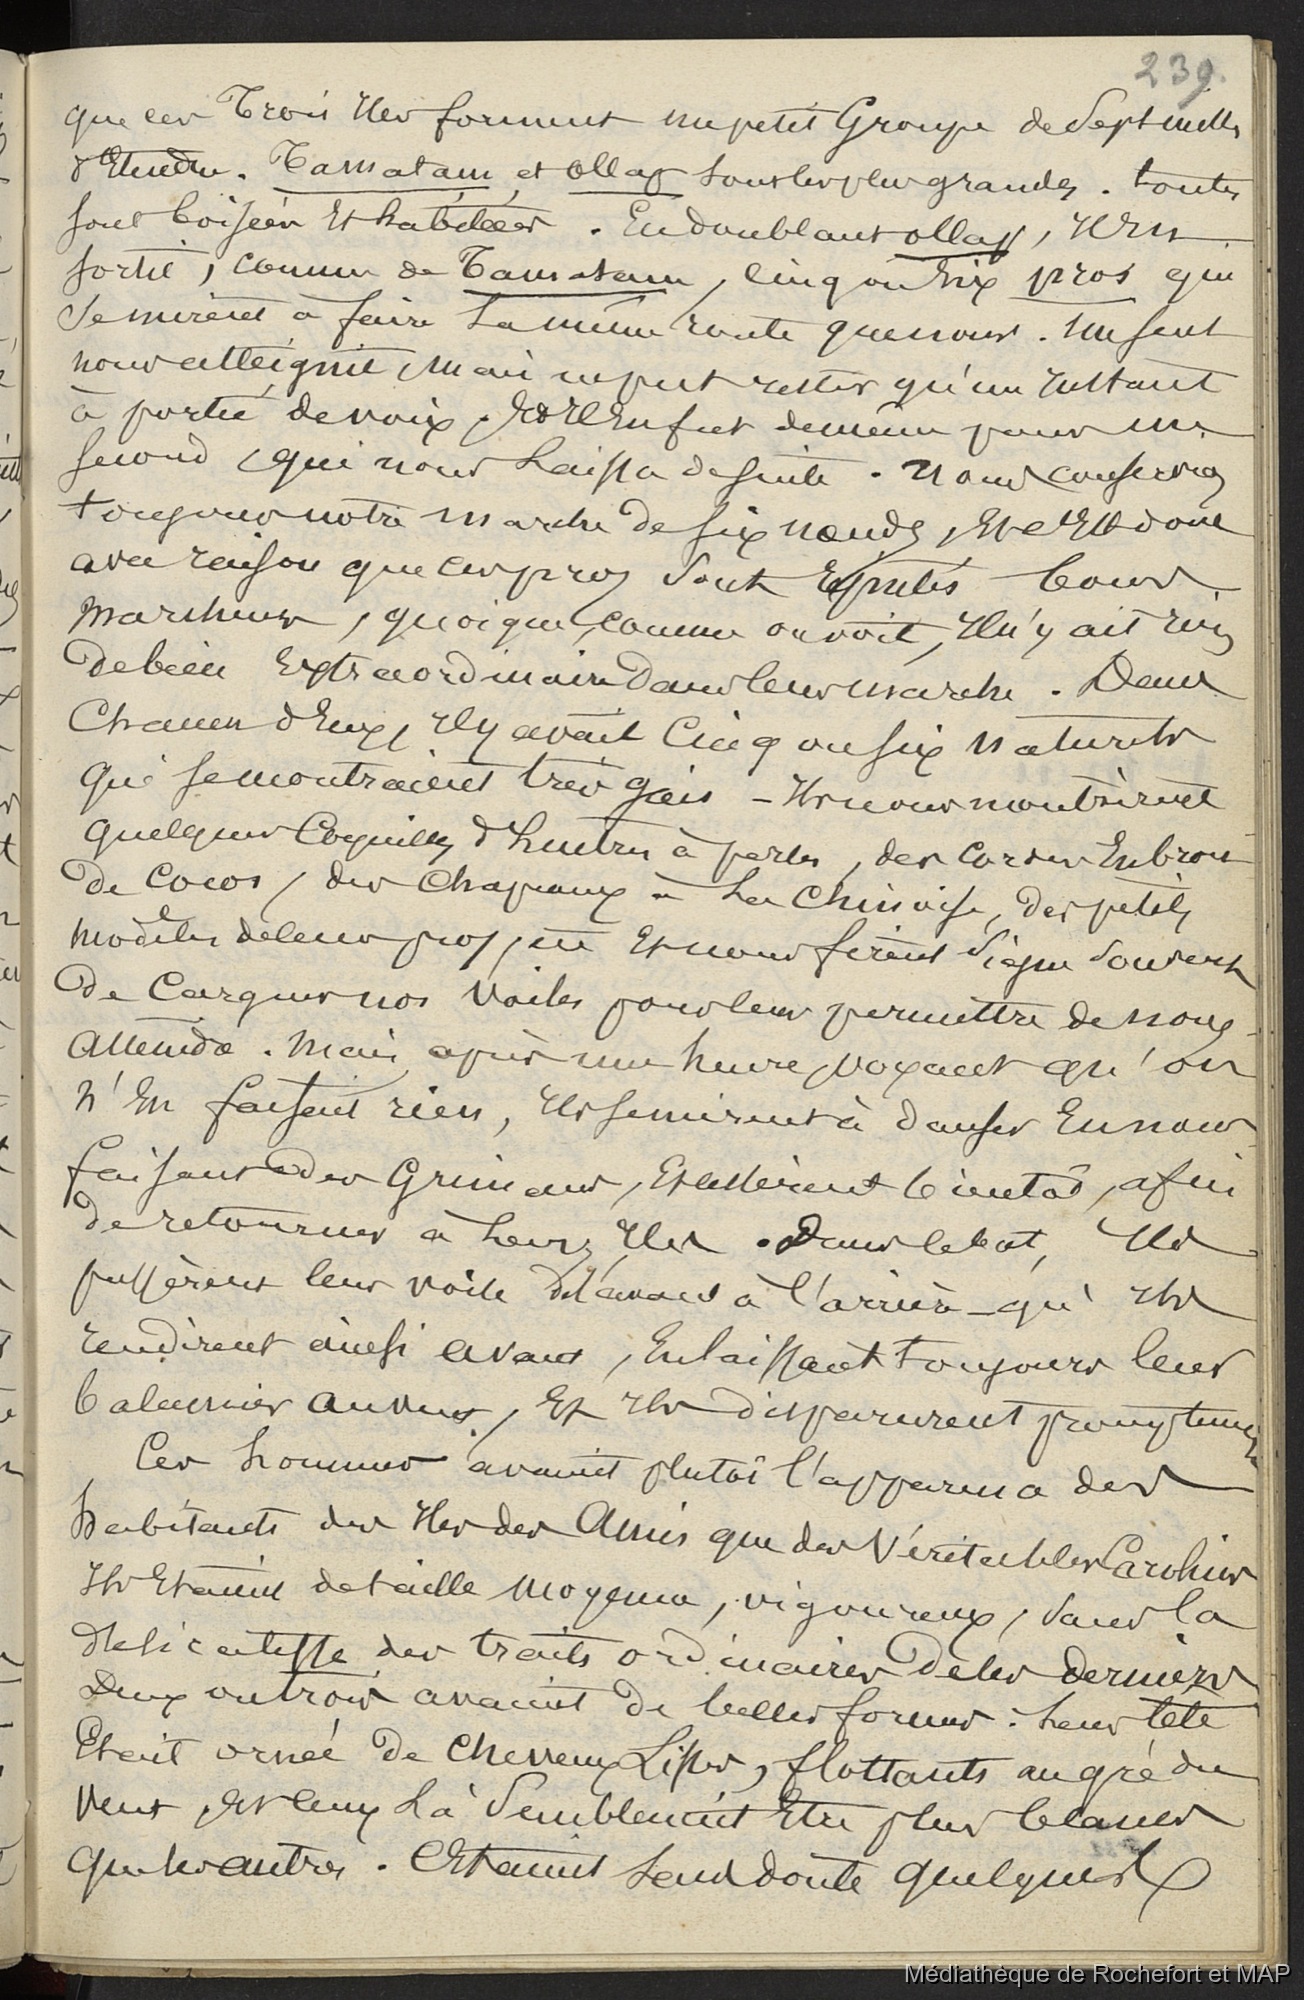 239.
que ces Trois Iles forment un petit Groupe de Sept milles
d'Etendue. Tamatam et ollap sont les plus grandes. toutes
sont boisées Et habitées. En doublant ollap, Il En
sortit, comme de Tamatam, cinq ou Six pros qui
Se mirent à faire La même route que nous. Un seul
nous atteignit, Mais ne put rester qu'un Instant
à portée de voix, Et Il En fut de même pour un
second, qui nous Laissa de suite. Nous conservions
toujours notre marche de six nœuds, Et c'Est donc
avec raison que ces pros sont Réputés bons
Marcheurs, quoique, comme on voit, Il n'y ait rien
de bien Extraordinaire dans leur marche. Dans
Chacun d'Eux, Il y avait Cinq ou six Naturels
qui se montraient très gais - Ils nous montrèrent
quelques Coquilles d'huitres à perles, des Cordes En brou
de Cocos, des Chapeaux à La Chinoise, des petits
Modèles de leurs pros, Et nous firent Signe souvent
de Carguer nos Voiles pour leur permettre de nous
attendre. Mais après une heure, voyant qu'on
N'En faisait rien, Ils se mirent à danser En nous
faisant des Grimaces, Et bientôt, afin
de retourner à Leurs Iles. Dans ce but, Ils
passèrent leur voile de l'avant à l'arrière - qu'Ils
rendirent ainsi avant, En laissant toujours leur
balancier au vent, Et Ils disparurent promptement
Ces hommes avaient plutôt l'apparence des
habitants des Iles des Amis que des Véritables Carolins
Ils Etaient de taille Moyenne, vigoureux, Sans la
délicatesse des traits ordinaires de ces derniers
Deux ou trois avaient de belles formes. Leur tête
Etait ornée de Cheveux Lisses, flottants au gré du
Vent, Et Ceux Là Semblaient Etre plus blancs
que les autres. C'Etaient Sans doute quelques
Médiathèque de Rochefort et MAP